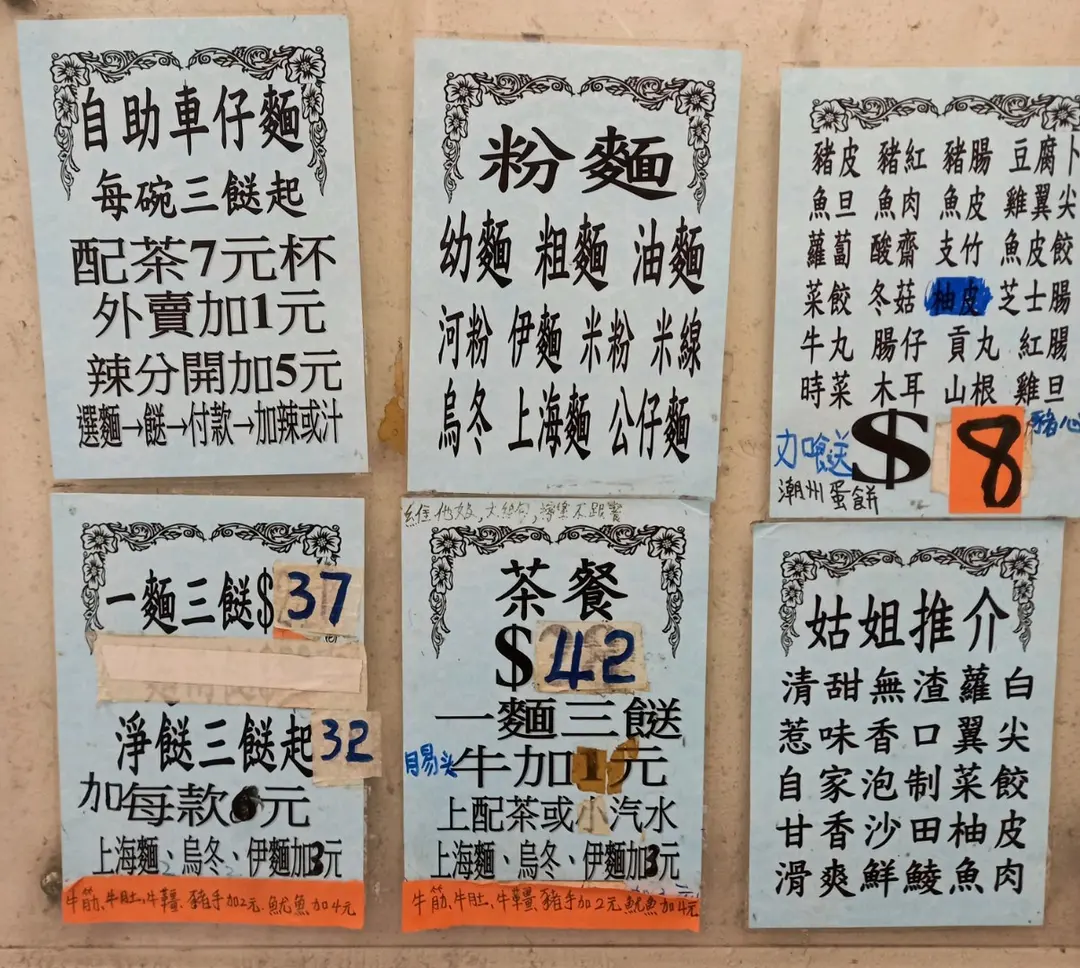 自助車仔麵
每碗三餸起
配茶7元杯
外賣加1元
辣分開加5元
選麵→餸→付款→加辣或汁
粉麵
幼麵 粗麵 油麵
河粉 伊麵 米粉 米線
烏冬 上海麵 公仔麵
豬皮 豬紅 豬腸 豆腐卜
魚旦 魚肉 魚皮 雞翼尖
蘿蔔 酸齋 支竹 魚皮餃
菜餃 冬菇 柚皮 芝士腸
牛丸 腸仔 貢丸 紅腸
時菜 木耳 山根 雞旦
豬心
$8
潮州蛋餅
一麵三餸$37
淨餸三餸起32
加每款元
上海麵、烏冬、伊麵加3元
牛筋、牛肚、牛
豬手加2元.魷魚加4元
茶餐
$42
一麵三餸
牛加1元
上配茶或小汽水
上海麵、烏冬、伊麵加3元
牛筋、牛肚、牛
豬手加2元魷魚加4元
姑姐推介
清甜無渣蘿白
惹味香口翼尖
自家泡制菜餃
甘香沙田柚皮
滑爽鮮鯪魚肉